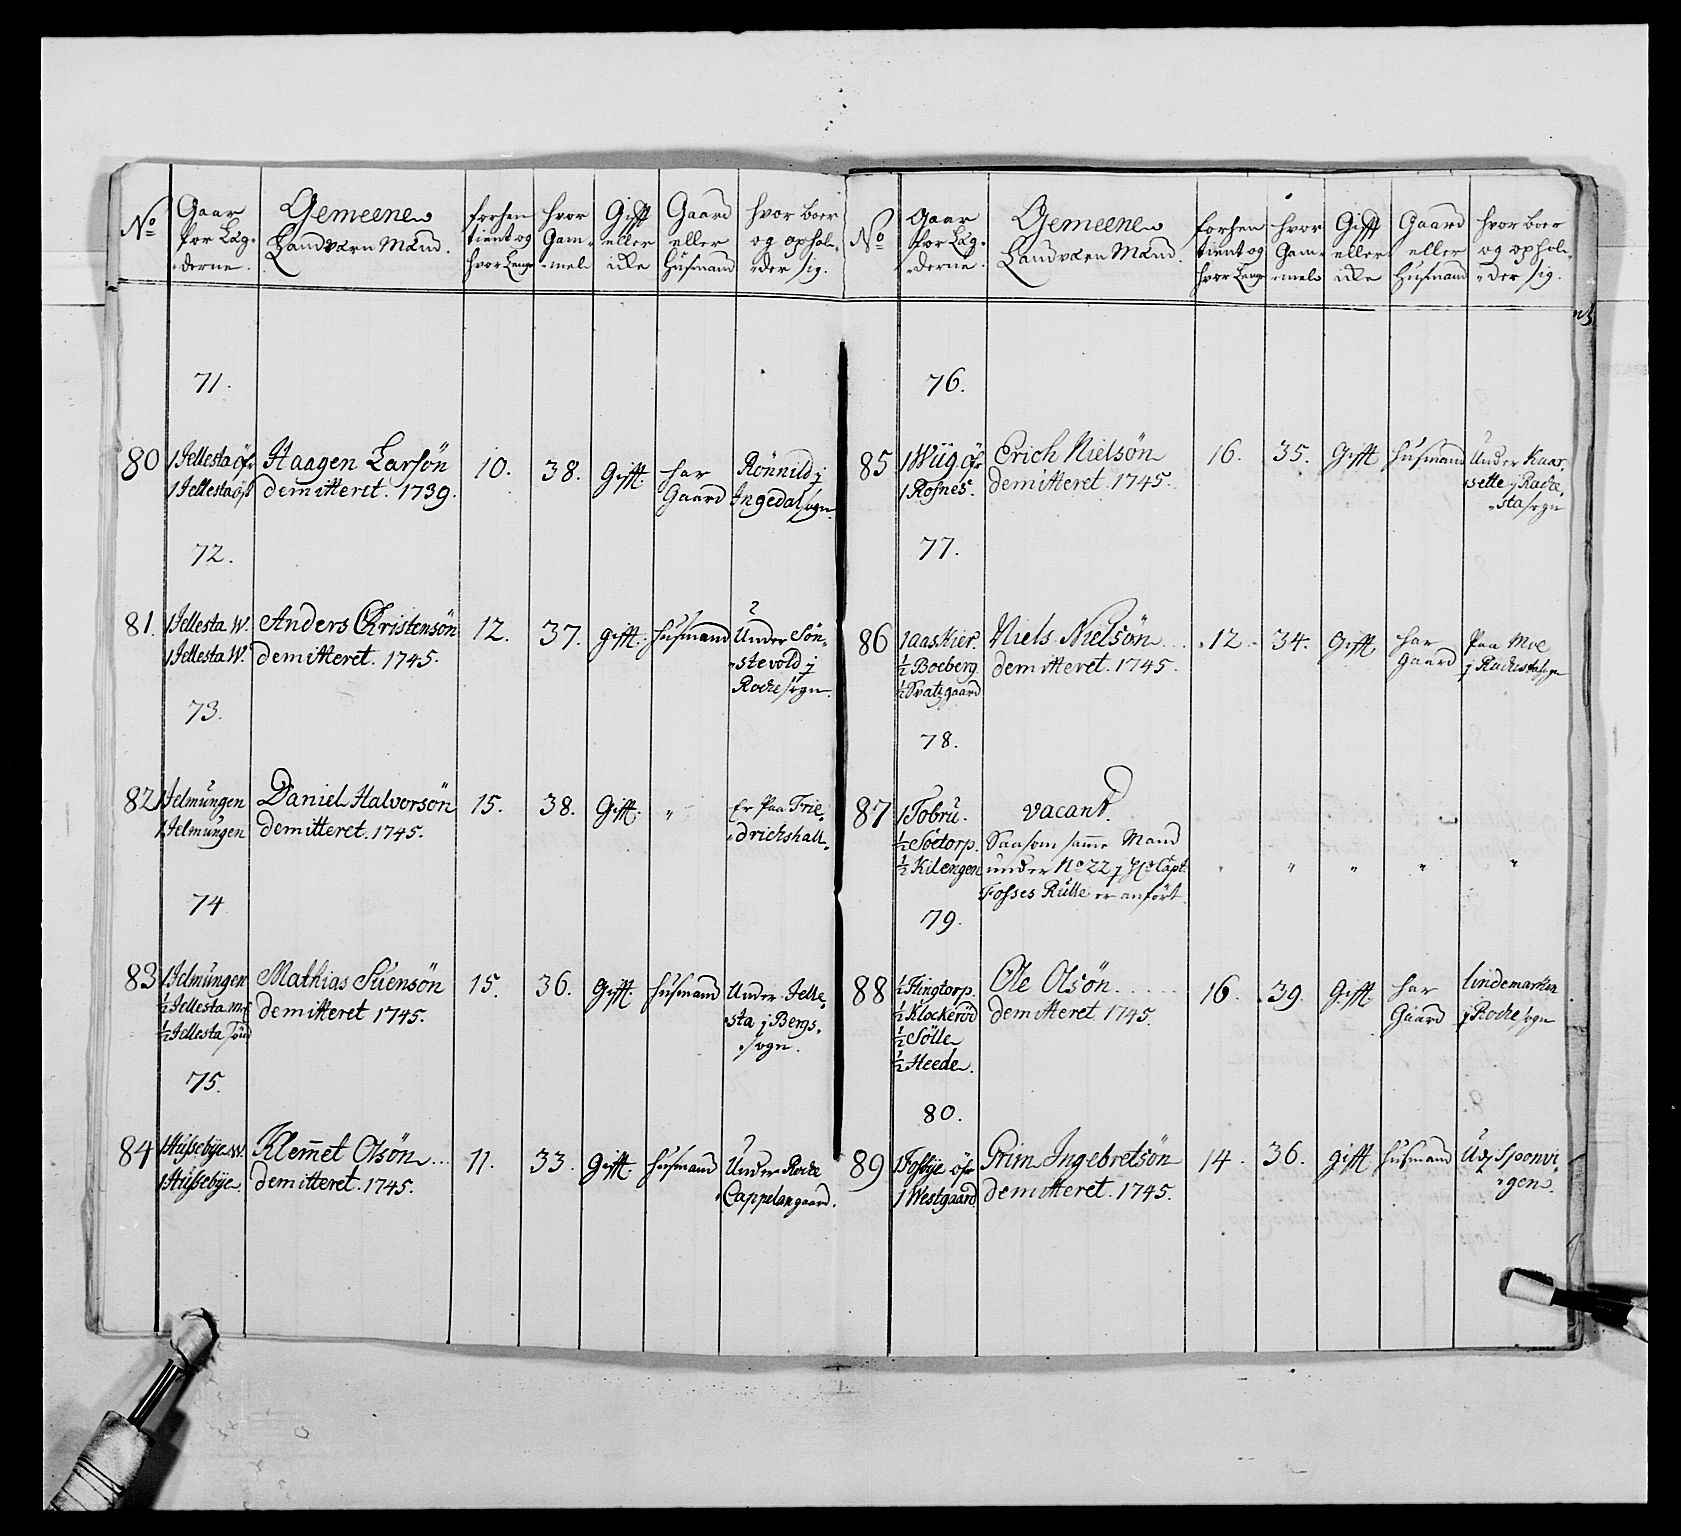 No
Gaar
for Læg-
derne.
Gemeene
Landværn Mænd.
forhen
tient og
hvor Længe
hvor
Gam-
mel
Gifft
eller
icke
Gaard
eller
Husmand
hvor boer
og ophol-
der sig.
71.
80
1 Jellesta Öfr
1 Jellesta öst
Haagen Larsön
demitteret. 1739.
10.
38.
Gifft
har
Gaard
Rönnild j
Ingedal sogn
72.
81.
1 Jellesta W.
1 Jellesta W.
Anders Christensön
demitteret. 1745.
12.
37.
gifft.
husmand
Under Sön-
stevold j
Rocke sogn.
73.
82
1 Jelmüngen
1 Jelmüngen
Daniel Halvorsön
demitteret. 1745.
15.
38.
Gifft.
"
Er paa Frie-
drichshall
74
83
1 Jelmüngen
½ Jellesta
½ Jellesta
Mathias Suensön
demitteret 1745.
15.
36.
Gifft.
husmand
Under Jelle-
sta j Bergs-
sogn.
75.
84
1 Hüssebÿe W.
1 Hüssebÿe.
Klem̅et Olsön
demitteret. 1745.
11.
33.
gifft.
husmand
Under Rocke
Cappelangaard.
No
Gaar
for Læg-
derne.
Gemeene
Landværn Mænd.
forhen
tient og
hvor Længe
hvor
Gam-
mel
Gifft
eller
icke
Gaard
eller
Husmand
hvor boer
og ophol-
der sig.
76.
85
1 Wiig Öfr
1 Rosnes.
Erich Nielsön
demitteret. 1745.
16.
35.
Gifft
husmand
Under Kaar-
sette j Racke-
sta sogn
77.
86
1 aaskier.
½ Boeberg.
½ Svatzgaard
Niels Nielsön
demitteret. 1745.
12.
34.
Gifft
har
Gaard
Paa Moe
j Rackesta sogn
78.
87
1 Tobrü.
½ Söetorp.
½ Kilengen
vacant.
Saasom sam̅e Mand
under No 22 j Hr Capt:
Fosses Rulle er anfört.
"
"
"
"
"
79.
88
½ Flingtorp.
½ Klockeröd
½ Sölle
½ Heede.
Ole Olsön
demitteret 1745.
16.
39.
Gifft
har
Gaard
Lindemarken
j Rocke sogn
80.
89
1 Fosbÿe öfr
1 Westgaard
Grim Ingebretsön
demitteret. 1745.
14.
36.
gifft
husmand
Spoonvi-
gen.